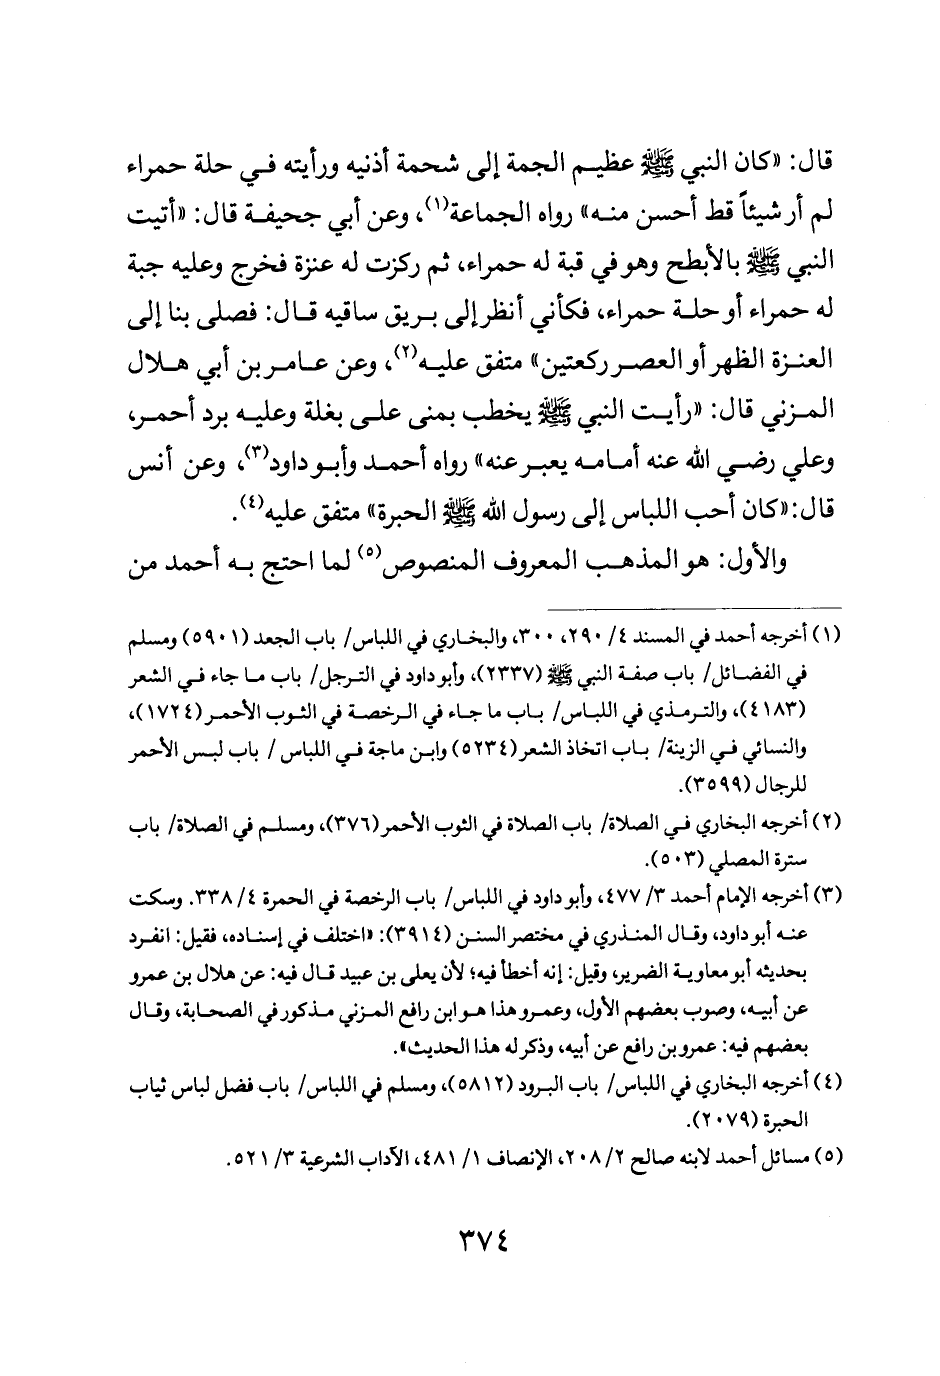 قال: «كان النبي ﷺ عظيم الجمة إلى شحمة أذنيه ورأيته في حلة حمراء
لم أر شيئاً قط أحسن منه» رواه الجماعة(١)، وعن أبي جحيفة قال: «أتيت
النبي ﷺ بالأبطح وهو في قبة له حمراء، ثم ركزت له عنزة فخرج وعليه جبة
له حمراء أو حلة حمراء، فكأني أنظر إلى بريق ساقيه قال: فصلى بنا إلى
العنزة الظهر أو العصر ركعتين» متفق عليه(٢)، وعن عامر بن أبي هلال
المزني قال: «رأيت النبي ﷺ يخطب بمنى على بغلة وعليه برد أحمر،
وعلي رضي الله عنه أمامه يعبر عنه» رواه أحمد وأبو داود(٣)، وعن أنس
قال:«كان أحب اللباس إلى رسول الله ﷺ الحبرة» متفق عليه(٤).
والأول: هو المذهب المعروف المنصوص(٥) لما احتج به أحمد من
(١) أخرجه أحمد في المسند ٤/ ٢٩٠، ٣٠٠، والبخاري في اللباس/ باب الجعد (٥٩٠١) ومسلم
في الفضائل/ باب صفة النبي ﷺ (٢٣٣٧)، وأبو داود في الترجل/ باب ما جاء في الشعر
(٤١٨٣)، والترمذي في اللباس/ باب ما جاء في الرخصة في الثوب الأحمر (١٧٢٤)،
والنسائي في الزينة/ باب اتخاذ الشعر (٥٢٣٤) وابن ماجة في اللباس / باب لبس الأحمر
للرجال (٣٥٩٩).
(٢) أخرجه البخاري في الصلاة/ باب الصلاة في الثوب الأحمر (٣٧٦)، ومسلم في الصلاة/ باب
سترة المصلي (٥٠٣).
(٣) أخرجه الإمام أحمد ٣/ ٤٧٧، وأبو داود في اللباس/ باب الرخصة في الحمرة ٤/ ٣٣٨. وسكت
عنه أبو داود، وقال المنذري في مختصر السنن (٣٩١٤): «اختلف في إسناده، فقيل: انفرد
بحديثه أبو معاوية الضرير، وقيل: إنه أخطأ فيه؛ لأن يعلى بن عبيد قال فيه: عن هلال بن عمرو
عن أبيه، وصوب بعضهم الأول، وعمرو هذا هو ابن رافع المزني مذكور في الصحابة، وقال
بعضهم فيه: عمرو بن رافع عن أبيه، وذكر له هذا الحديث».
(٤) أخرجه البخاري في اللباس/ باب البرود (٥٨١٢)، ومسلم في اللباس/ باب فضل لباس ثياب
الحبرة (٢٠٧٩).
(٥) مسائل أحمد لابنه صالح ٢/ ٢٠٨، الإنصاف ١/ ٤٨١، الآداب الشرعية ٣/ ٥٢١.
٣٧٤